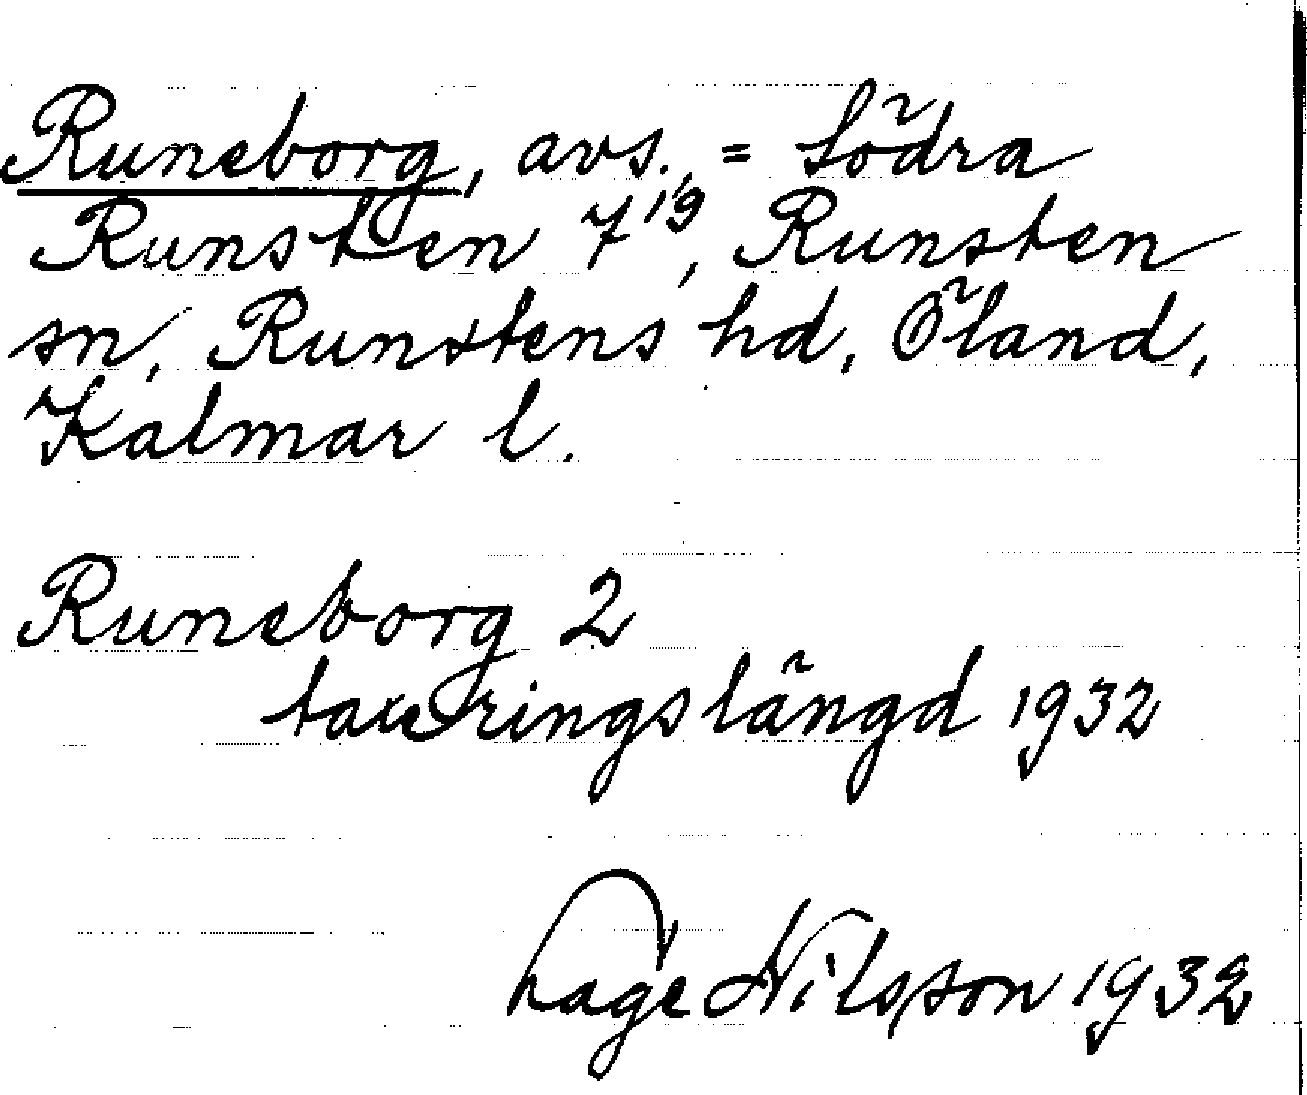 Runeborg, avs., = Södra
Runsten 7¹⁹, Runsten
sn, Runstens hd, Öland,
Kalmar l.
Runeborg 2
taxeringslängd 1932
Tage Nilsson 1932